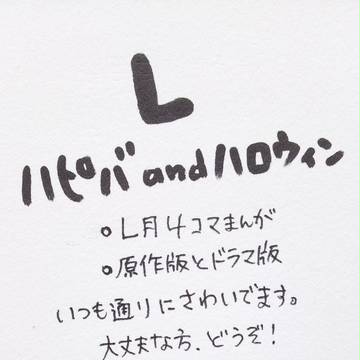 L
ハピバandハロウィン
○L月4コマまんが
○原作版とドラマ版
いつも通りにさわいでます。
大丈夫な方、どうぞ!